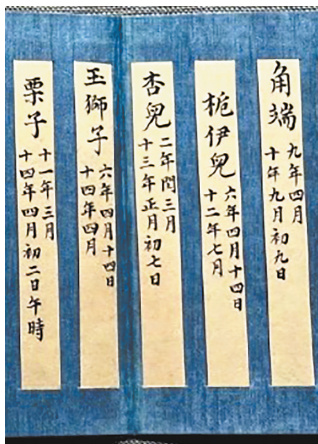 角端
九年四月
十年九月初九日
桅伊兒
六年四月十四日
十二年七月
杏兒
二年閏三月
十三年正月初七日
玉獅子
六年四月十四日
十四年四月
栗子
十一年三月
十四年四月初二日午時